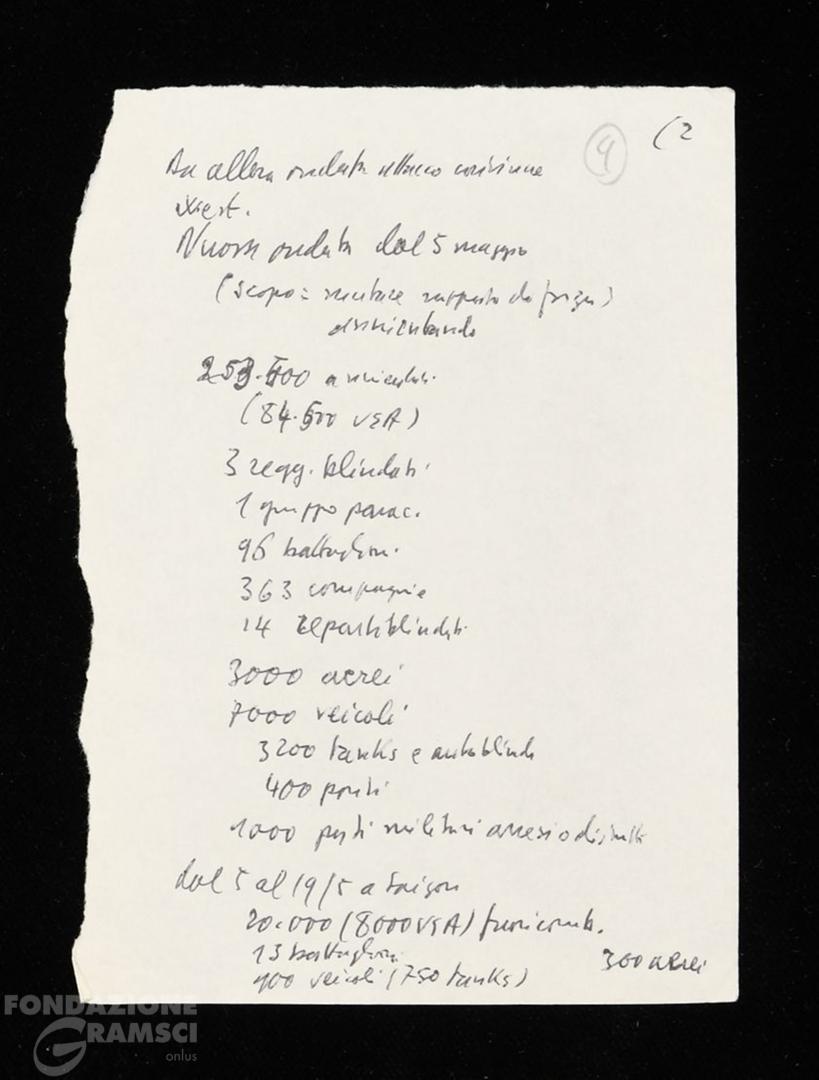 9
(2
Da allora ondata attacco
West.
Nuova ondata dal 5 maggio
(scopo = mutare rapporto da forza)
annientando
253.500 annientati
(84.500 USA)
3 regg. blindati
1 gruppo parac.
96 battaglioni
363 compagnie
14 reparti blindati
3000 aerei
7000 veicoli
3200 tanks e autoblinde
400 ponti
1000 posti militari arresi o distrutti
dal 5 al 19/5 a Saigon
20.000 (8000 USA) fuori comb.
13 battaglioni
300 aerei
900 veicoli (750 tanks)
FONDAZIONE
GRAMSCI
onlus